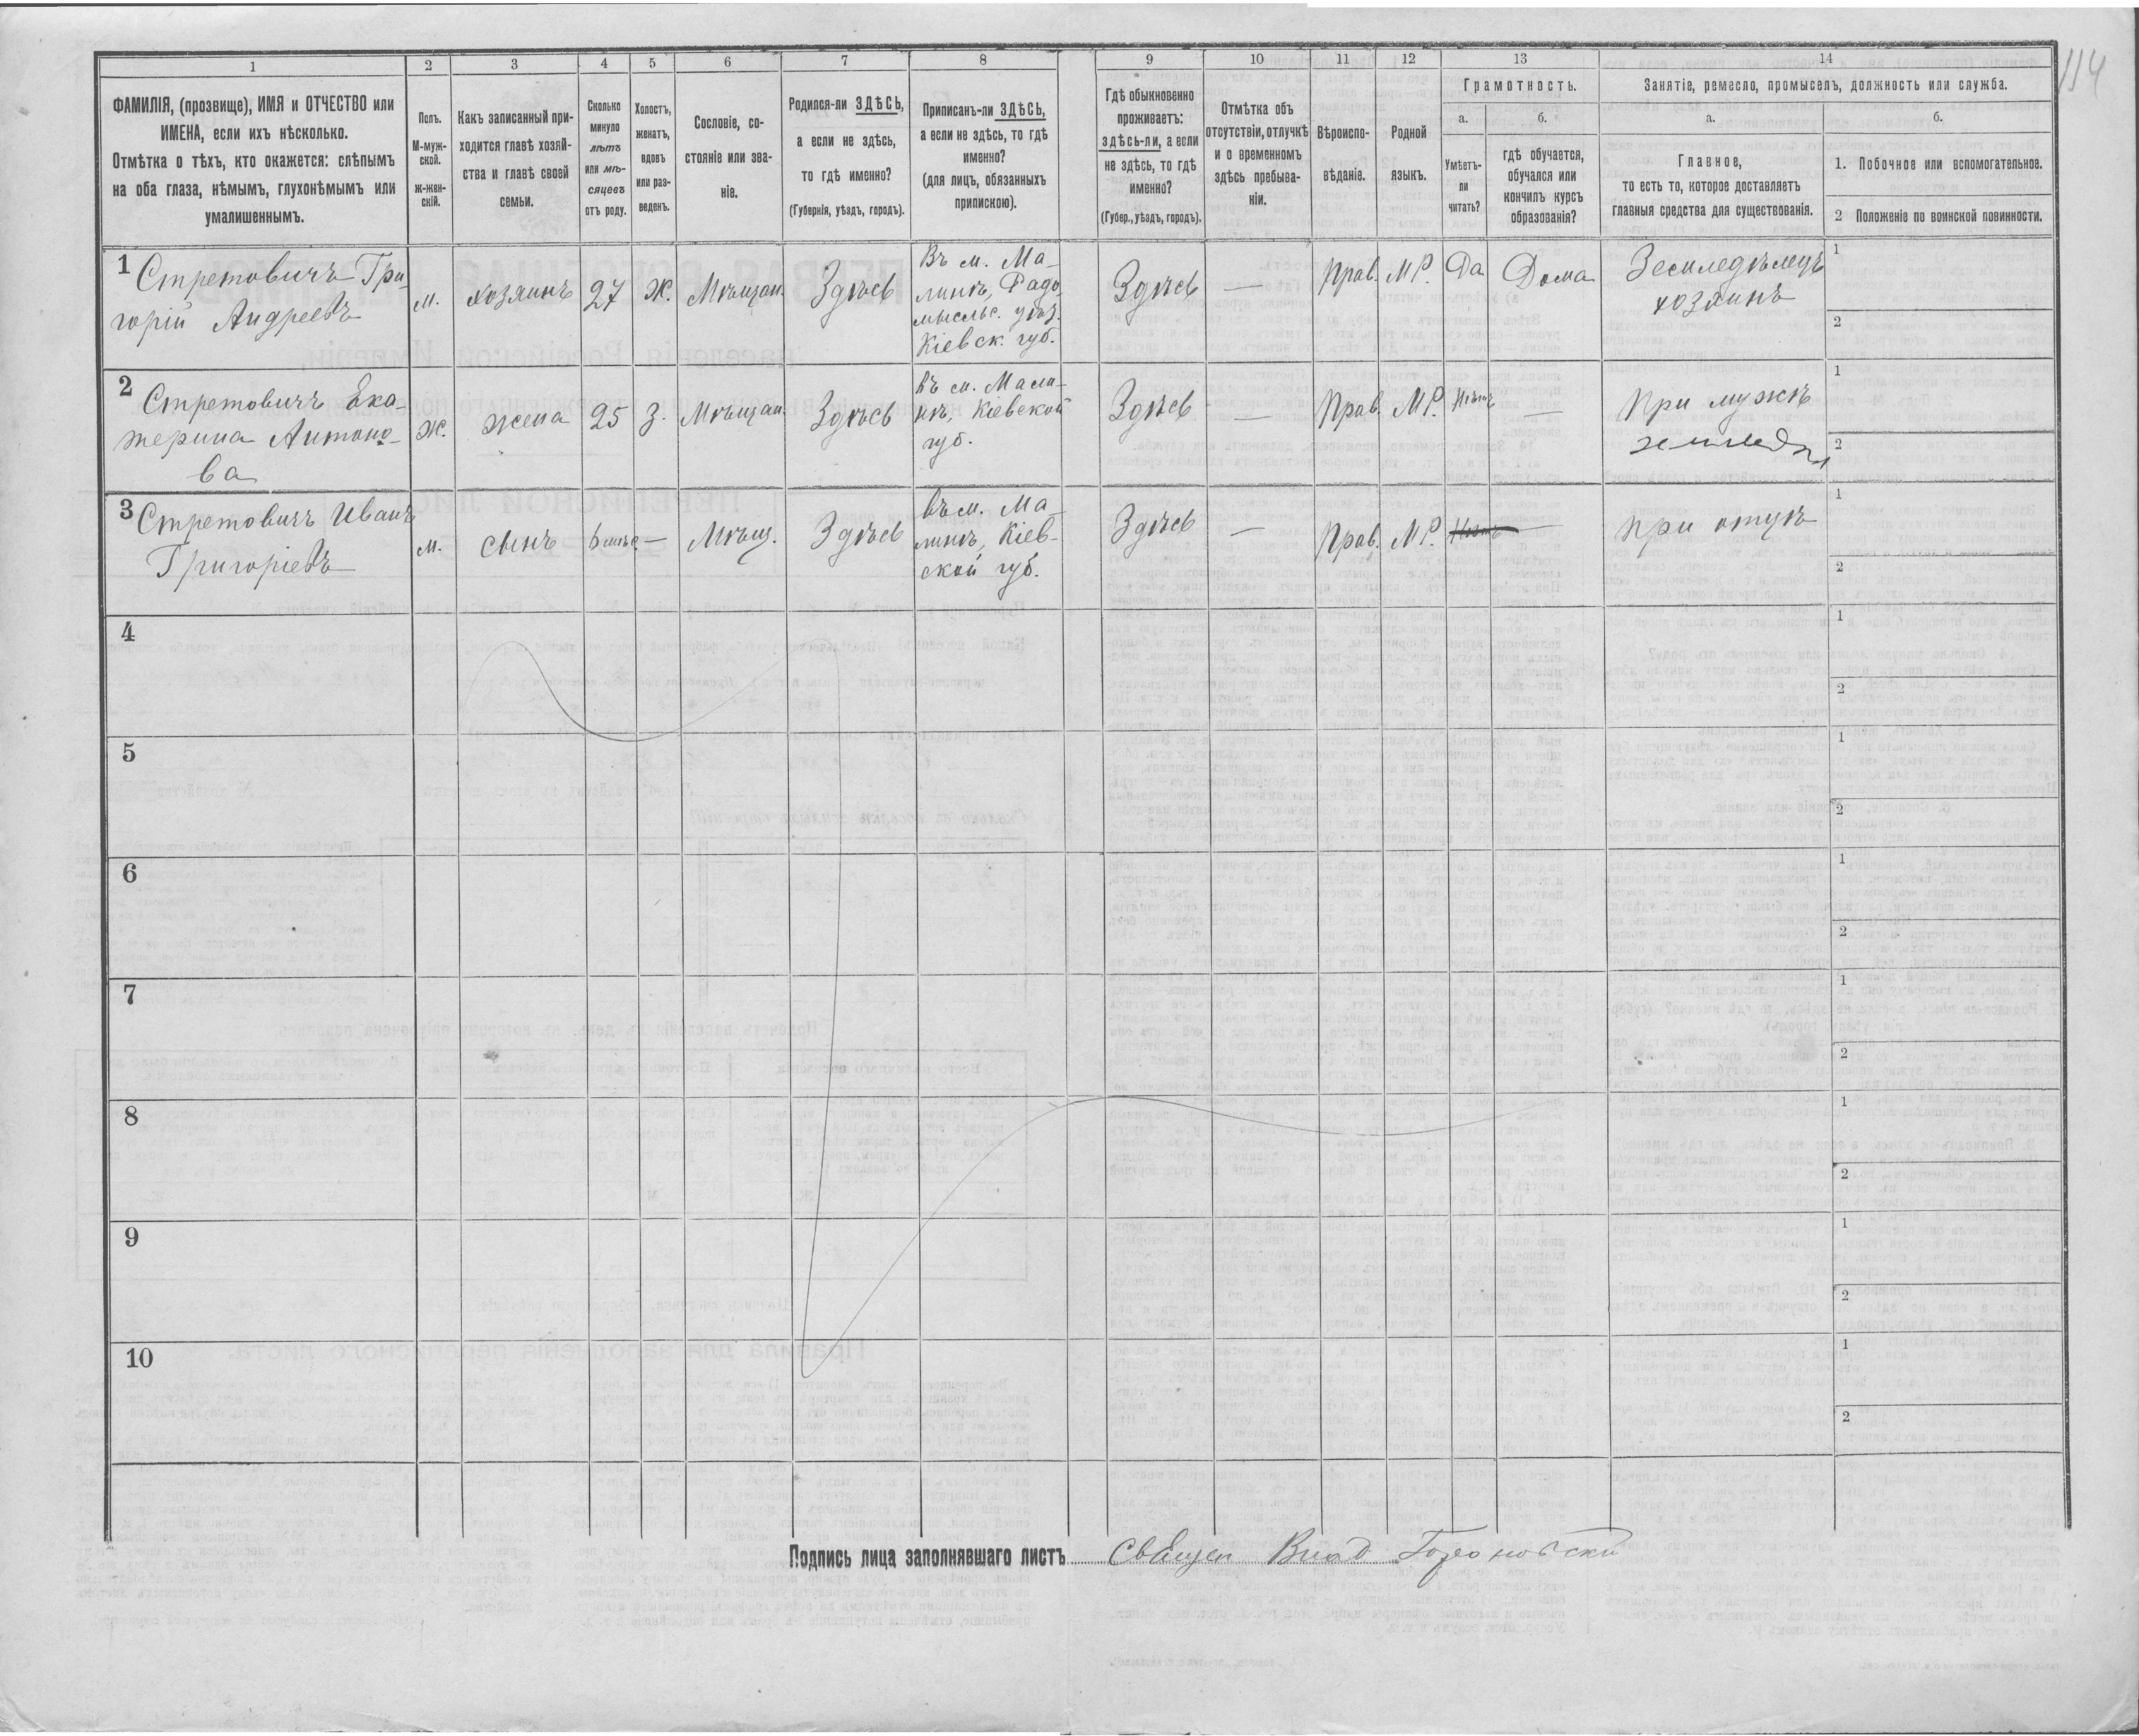 114
1
2
3
4
5
6
7
8
9
10
11
12
13
14
ФАМИЛІЯ, (прозвище), ИМЯ и ОТЧЕСТВО или
ИМЕНА, если ихъ нѣсколько.
Отмѣтка о тѣхъ, кто окажется: слѣпымъ
на оба глаза, нѣмымъ, глухонѣмымъ или
умалишеннымъ.
Полъ.
М-муж-
ской.
ж-жен-
скій.
Какъ записанный при-
ходится главѣ хозяй-
ства и главѣ своей
семьи.
Сколько
минуло
лѣтъ
или мѣ-
сяцевъ
отъ роду.
Холостъ,
женатъ,
вдовъ
или раз-
веденъ.
Сословіе, со-
стояніе или зва-
ніе.
Родился-ли ЗДѢСЬ,
а если не здѣсь,
то гдѣ именно?
(Губернія, уѣздъ, городъ).
Приписанъ-ли ЗДѢСЬ,
а если не здѣсь, то гдѣ
именно?
(для лицъ, обязанныхъ
припискою).
Гдѣ обыкновенно
проживаетъ:
здѣсь-ли, а если
не здѣсь, то гдѣ
именно?
(Губер., уѣздъ, городъ).
Отмѣтка объ
отсутствіи, отлучкѣ
и о временномъ
здѣсь пребыва-
ніи.
Вѣроиспо-
вѣданіе.
Родной
языкъ.
Грамотность.
а.
Умѣетъ-
ли
читать?
б.
гдѣ обучается,
обучался или
кончилъ курсъ
образованія?
Занятіе, ремесло, промыселъ, должность или служба.
а.
Главное,
то есть то, которое доставляетъ
главныя средства для существованія.
б.
1. Побочное или вспомогательное.
2 Положеніе по воинской повинности.
1 Стретовичъ Гри-
горій Андреевъ
м.
хозяинъ
27
ж.
Мѣщан.
Здѣсь
Въ м. Ма-
линѣ, Радо-
мысльс. уѣз.
Кіевск. губ.
Здѣсь
—
Прав.
МР.
Да
Дома
Земледѣлецъ
хозяинъ
1
2
2 Стретовичъ Ека-
терина Антоно-
ва
ж.
жена
25
З.
Мѣщан.
Здѣсь
въ м. Мали-
нѣ, Кіевской
губ.
Здѣсь
—
Прав.
МР.
Нѣтъ
—
При мужѣ
1
2
3 Стретовичъ Иванъ
Григоріевъ
м.
сынъ
—
Мѣщ.
Здѣсь
въ м. Ма-
линѣ, Кіев-
ской губ.
Здѣсь
—
Прав.
МР.
Нѣтъ
—
При отцѣ
1
2
4
1
2
5
1
2
6
1
2
7
1
2
8
1
2
9
1
2
10
1
2
Подпись лица заполнявшаго листъ Священ Влад